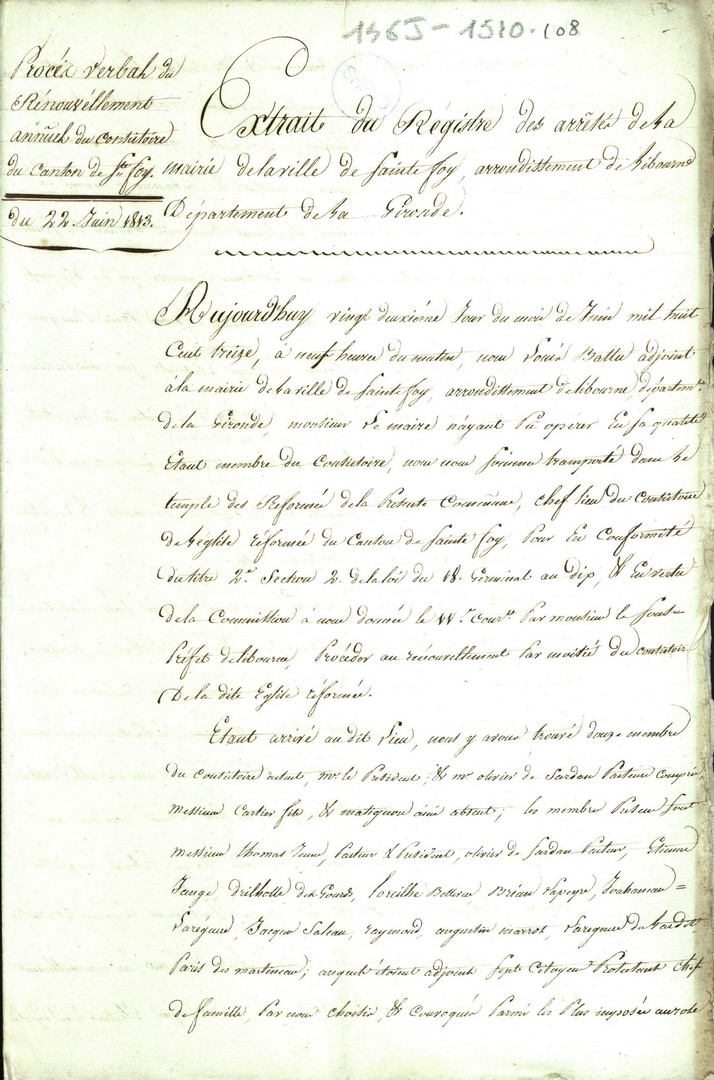 1565-1510.108
Procés verbal du
Rénouvéllement
annuel du consistoire
du Canton de Ste foy.
du 22 Juin 1813.
Extrait du Régistre des arrêtés de la
mairie de la ville de Sainte foy, arrondissement de Libourne
Département de la Gironde.
Aujourd'huy vingt deuxiéme Jour du mois de Juin mil huit
Cent treize, à neuf heures du matin, nous Louis Battu adjoint
à la mairie de la ville de Sainte foy, arrondissement de libourne, départemt
de la Gironde, monsieur Le maire n'ayant Pu opérer En sa qualité
Etant membre du Consistoire, nous nous sommes transporté dans Le
temple des Reformés de la Présente Commune, chef lieu du consistoire
de L'église réformée du Canton de Sainte foy, Pour En Conformité
du titre 2. Section 2. de la loi du 18. Germinal an dix, & En vertu
de la Commission à nous donnée le 11. cour. Par monsieur le sous-
Préfet de libourne, Procéder au renouvellement Par moitié du consistoire
De la dite Eglise réformée.
Etant arrivé au dit Lieu, nous y avons trouvé douze membres
du Consistoire actuel, mr. le Président, & mr. olivier de Sardan Pasteur compris,
messieurs Cartier fils, & matignon ainé absents; les membres Présens sont
messieurs thomas Jeune, Pasteur & Président, olivier de Sardan Pasteur, Etienne
Jauge, drilholle des Gourds, Loreilhe Bellevue, Briau Lapeyre,
Larégnere, Jacques Saleau, Raymond, augustin marrot, Laregnere du
Paris des martineau; auquel étoient adjoint sept Citoyens Protestant chef
de famille, Par nous choisis, & Convoqués Parmi les Plus imposés au role